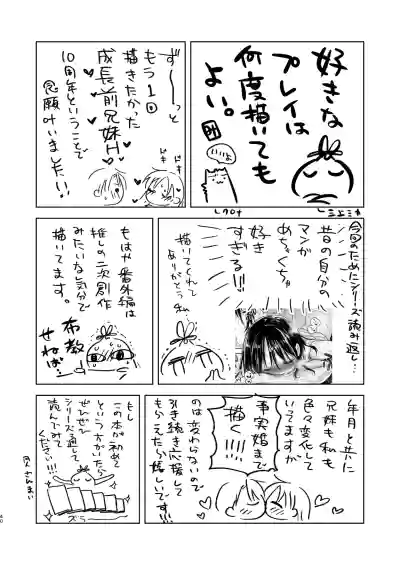 好きな
プレイは
何度描いても
よい。
いいよ
ミエミカ
ず〜〜っと
もう1回
描きたかった
成長前兄妹H♥
10周年ということで
念願叶いました!!
ドキ
ドキ
今回のためにシリーズ読み返し…
昔の自分の
マンガ
めちゃくちゃ
好き
すぎる!!!
描いてくれて
ありがとう私
もはや番外編は
推しの二次創作
みたいな気分で
描いてます。
布教
せねば…
年月と共に
兄妹も私も
色々変化して
いってますが
事実婚まで
描く!!!!
のは変わらないので
引き続き応援して
もらえたら嬉しいです!
もし
この本が初めて
という方がいたら
ぜひぜひ
シリーズ通して
読んでみて
ください!!!
ズラ
40